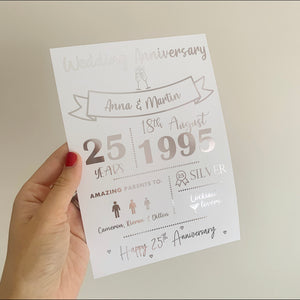 Wedding Anniversary
Anna & Martin
18th August
25
YEARS
1995
AMAZING PARENTS TO:
25
SILVER
Cameron, Kieran & Dillon
Happy 25th Anniversary